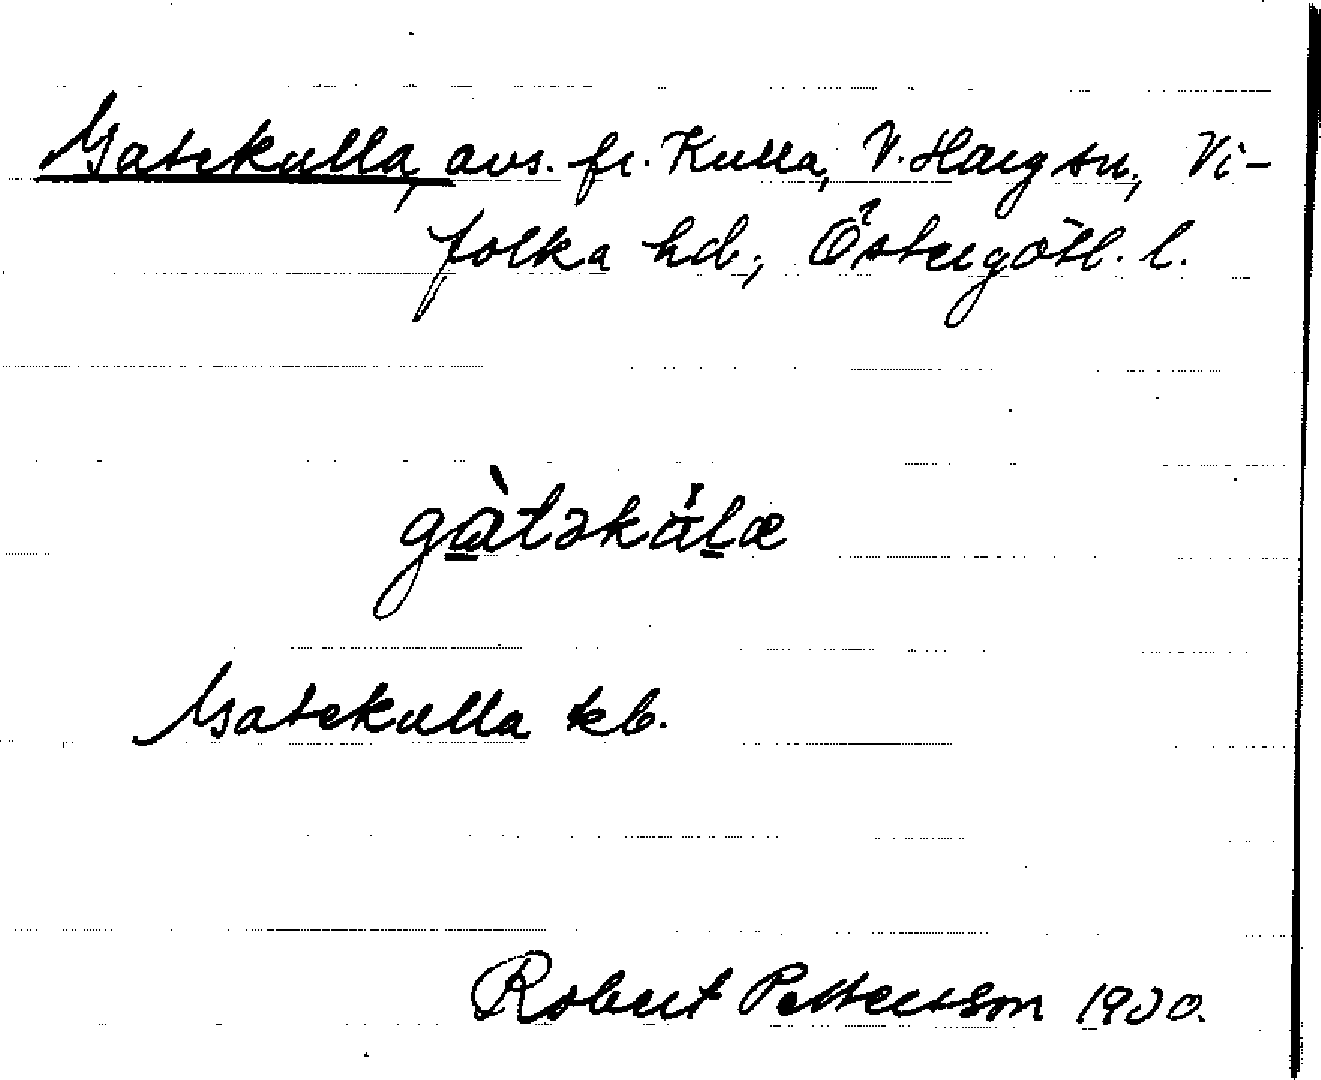 Gatekulla, avs. fr. Kulla, V. Harg sn, Vi-
folka hd, Östergötl. l.
gàtəkálæ
Gatekulla kb.
Robert Pettersson 1930.